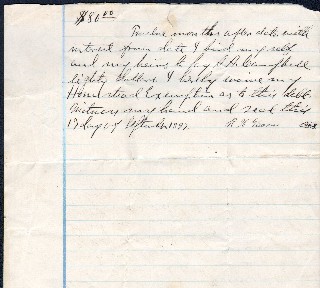 $80.00
Twelve months after date with
interest from date I bind my self
and my heirs to pay A. A. Campbell
Eighty Dollars I hereby waive my
Homestead Exemption as to this debt
Witness my hand and seal this
17 day of September 1897.